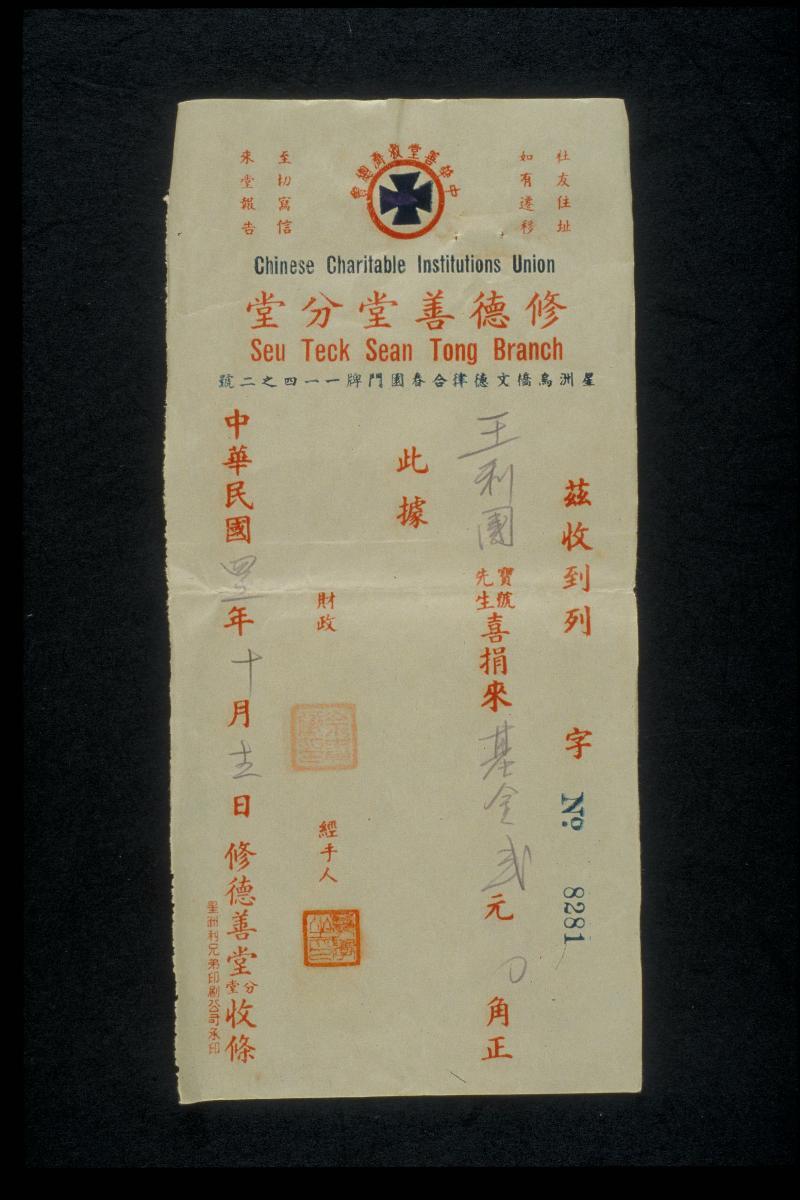 中華善堂救濟總會
社友住址
如有遷移
至切寫信
來堂報告
Chinese Charitable Institutions Union
修德善堂分堂
Seu Teck Sean Tong Branch
星洲烏橋文德律合春園門牌一一四之二號
茲收到列 字 No. 8281
王利團 寶號 先生 喜捐來 基金 弍 元 0 角正
此據
財政
經手人
中華民國 年 十 月 日 修德善堂 分堂 收條
星洲利兄弟印刷公司承印